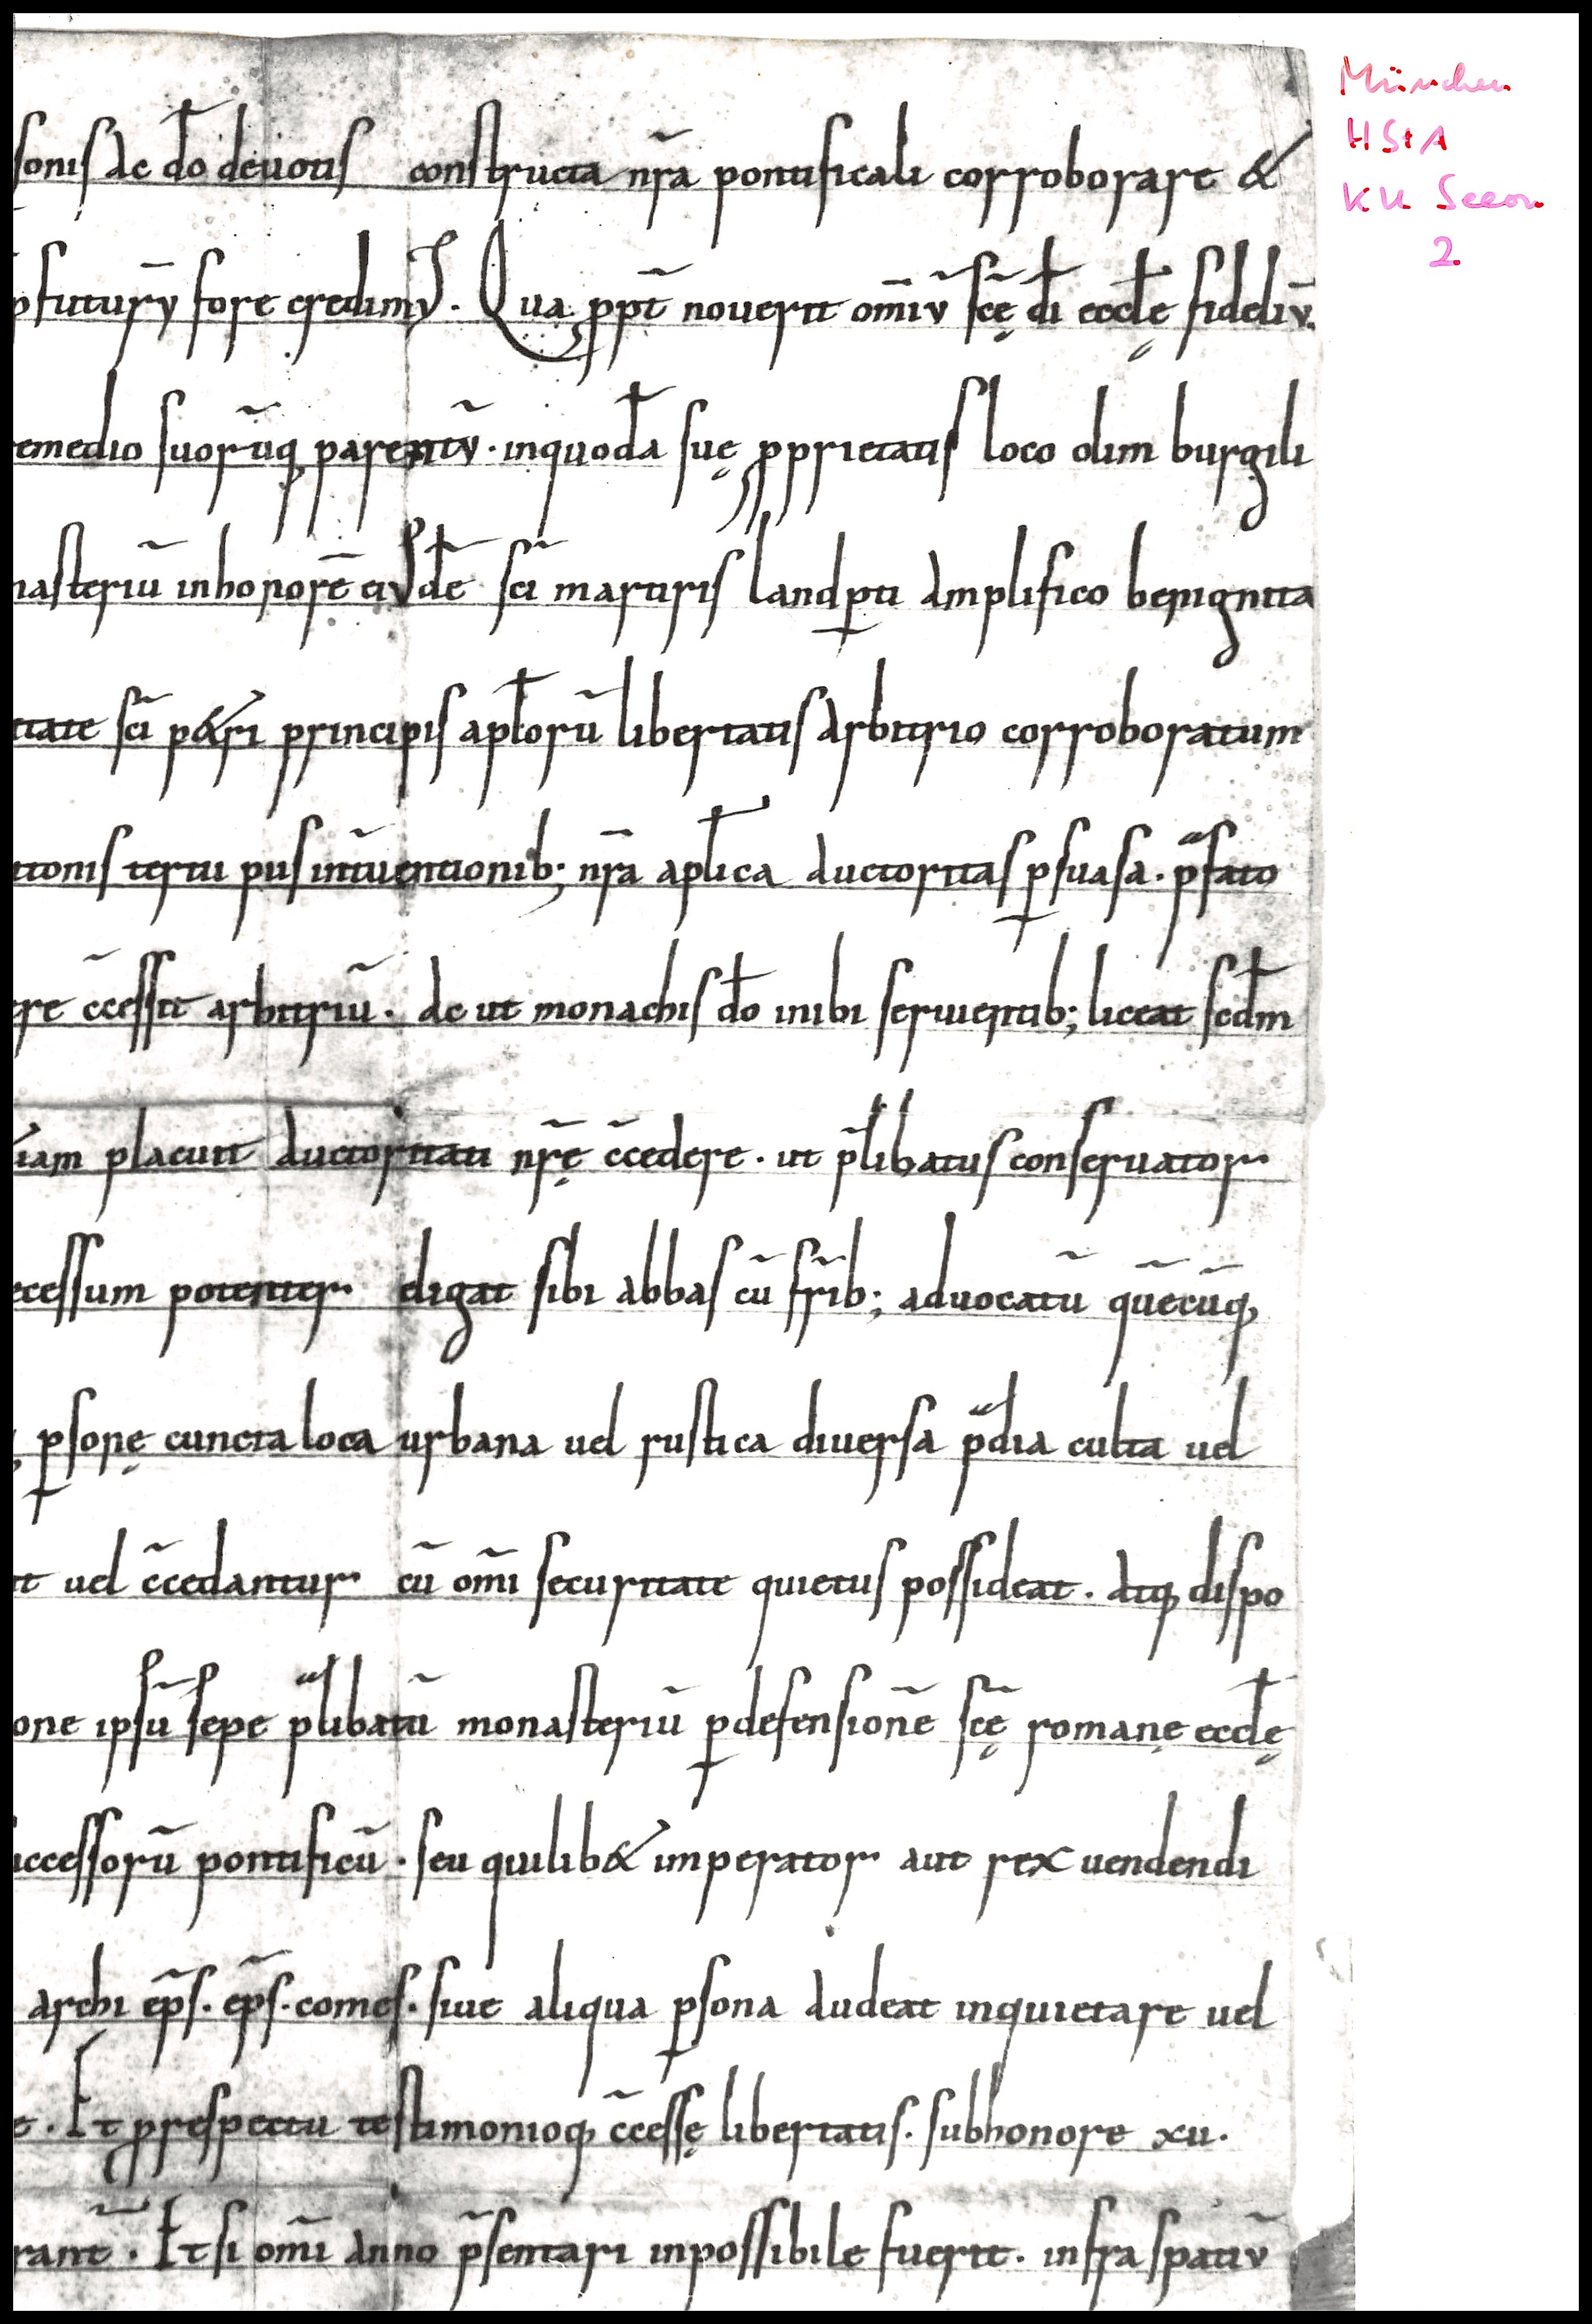 sonis ac d̄o deuotis constructa nr̄a pontificali corroborare &
pfuturv̄ fore credimus. Qua ppt̄ nouerit om̄iv̄ sc̄ę dī eccl̄ę fideliv̄.
remedio suorūq; parentv̄. inquodā suę pprietatis loco olim burgili
nasteriū inhonorē eiusdē sc̄i martiris landꝑti amplifico benignita
tate sc̄i p&ri principis apl̄orū libertatis arbitrio corroboratum
ttonis tertii pus int̄uentionib; nr̄a apl̄ica auctoritas ꝑsuasa. p̄fato
ere c̄cessit arbitriū. ac ut monachis d̄o inibi seruientib; liceat scd̄m
iam placuit auctoritati nr̄ę c̄cedere. ut p̄libatus conseruator
ecessum potenter eligat sibi abbas cū fr̄ib; aduocatū quēcūq;
ꝑsonę cuncta loca urbana uel rustica diuersa p̄dia culta uel
t uel c̄cedantur cū om̄i securitate quietus possideat. atq; dispo
one ipsū sepe p̄libatū monasteriū ꝑdefensionē sc̄ę romanę eccl̄ę
uccessorū pontificū. seu quilib& imperator aut rex uendendi
archi ep̄s. ep̄s. comes. siue aliqua ꝑsona audeat inquietare uel
e. Et ꝓrespectu testimonioq; c̄cessę libertatis. subhonore xu.
rant̄. Et si om̄i anno p̄sentari inpossibile fuerit. infra spativ̄
München
HStA
KU Seeon
2